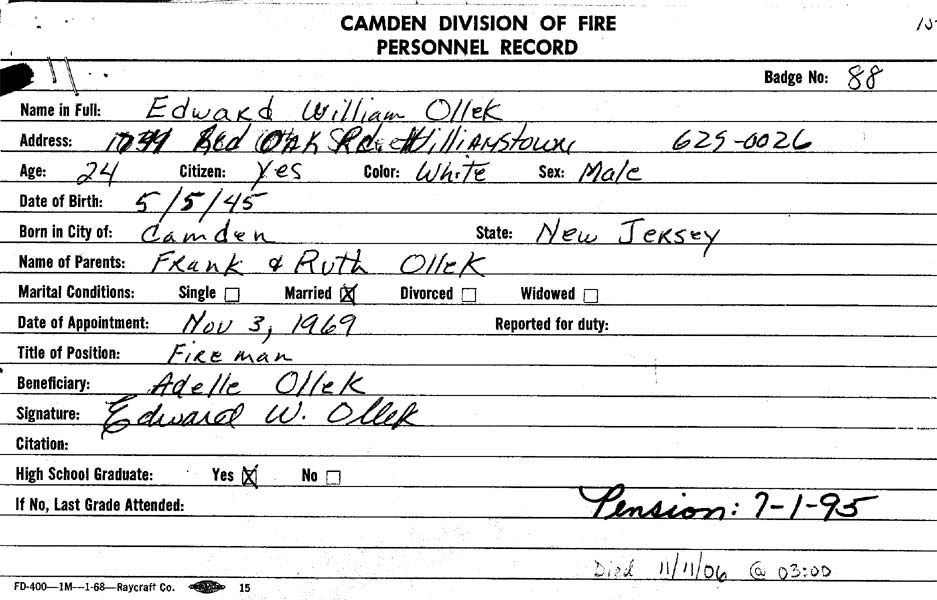 CAMDEN DIVISION OF FIRE
PERSONNEL RECORD
Badge No: 88
Name in Full: Edward William Ollek
Address: Red Oak Williamstown 629-0026
Age: 24 Citizen: Yes Color: White Sex: Male
Date of Birth: 5/5/45
Born in City of: Camden State: New Jersey
Name of Parents: Frank & Ruth Ollek
Marital Conditions: Single ☐ Married ☒ Divorced ☐ Widowed ☐
Date of Appointment: Nov 3, 1969 Reported for duty:
Title of Position: Fireman
Beneficiary: Adelle Ollek
Signature: Edward W. Ollek
Citation:
High School Graduate: Yes ☒ No ☐
If No, Last Grade Attended: Pension: 7-1-95
Died 11/11/06 @ 03:00
FD-400—1M—1-68—Raycraft Co. 15